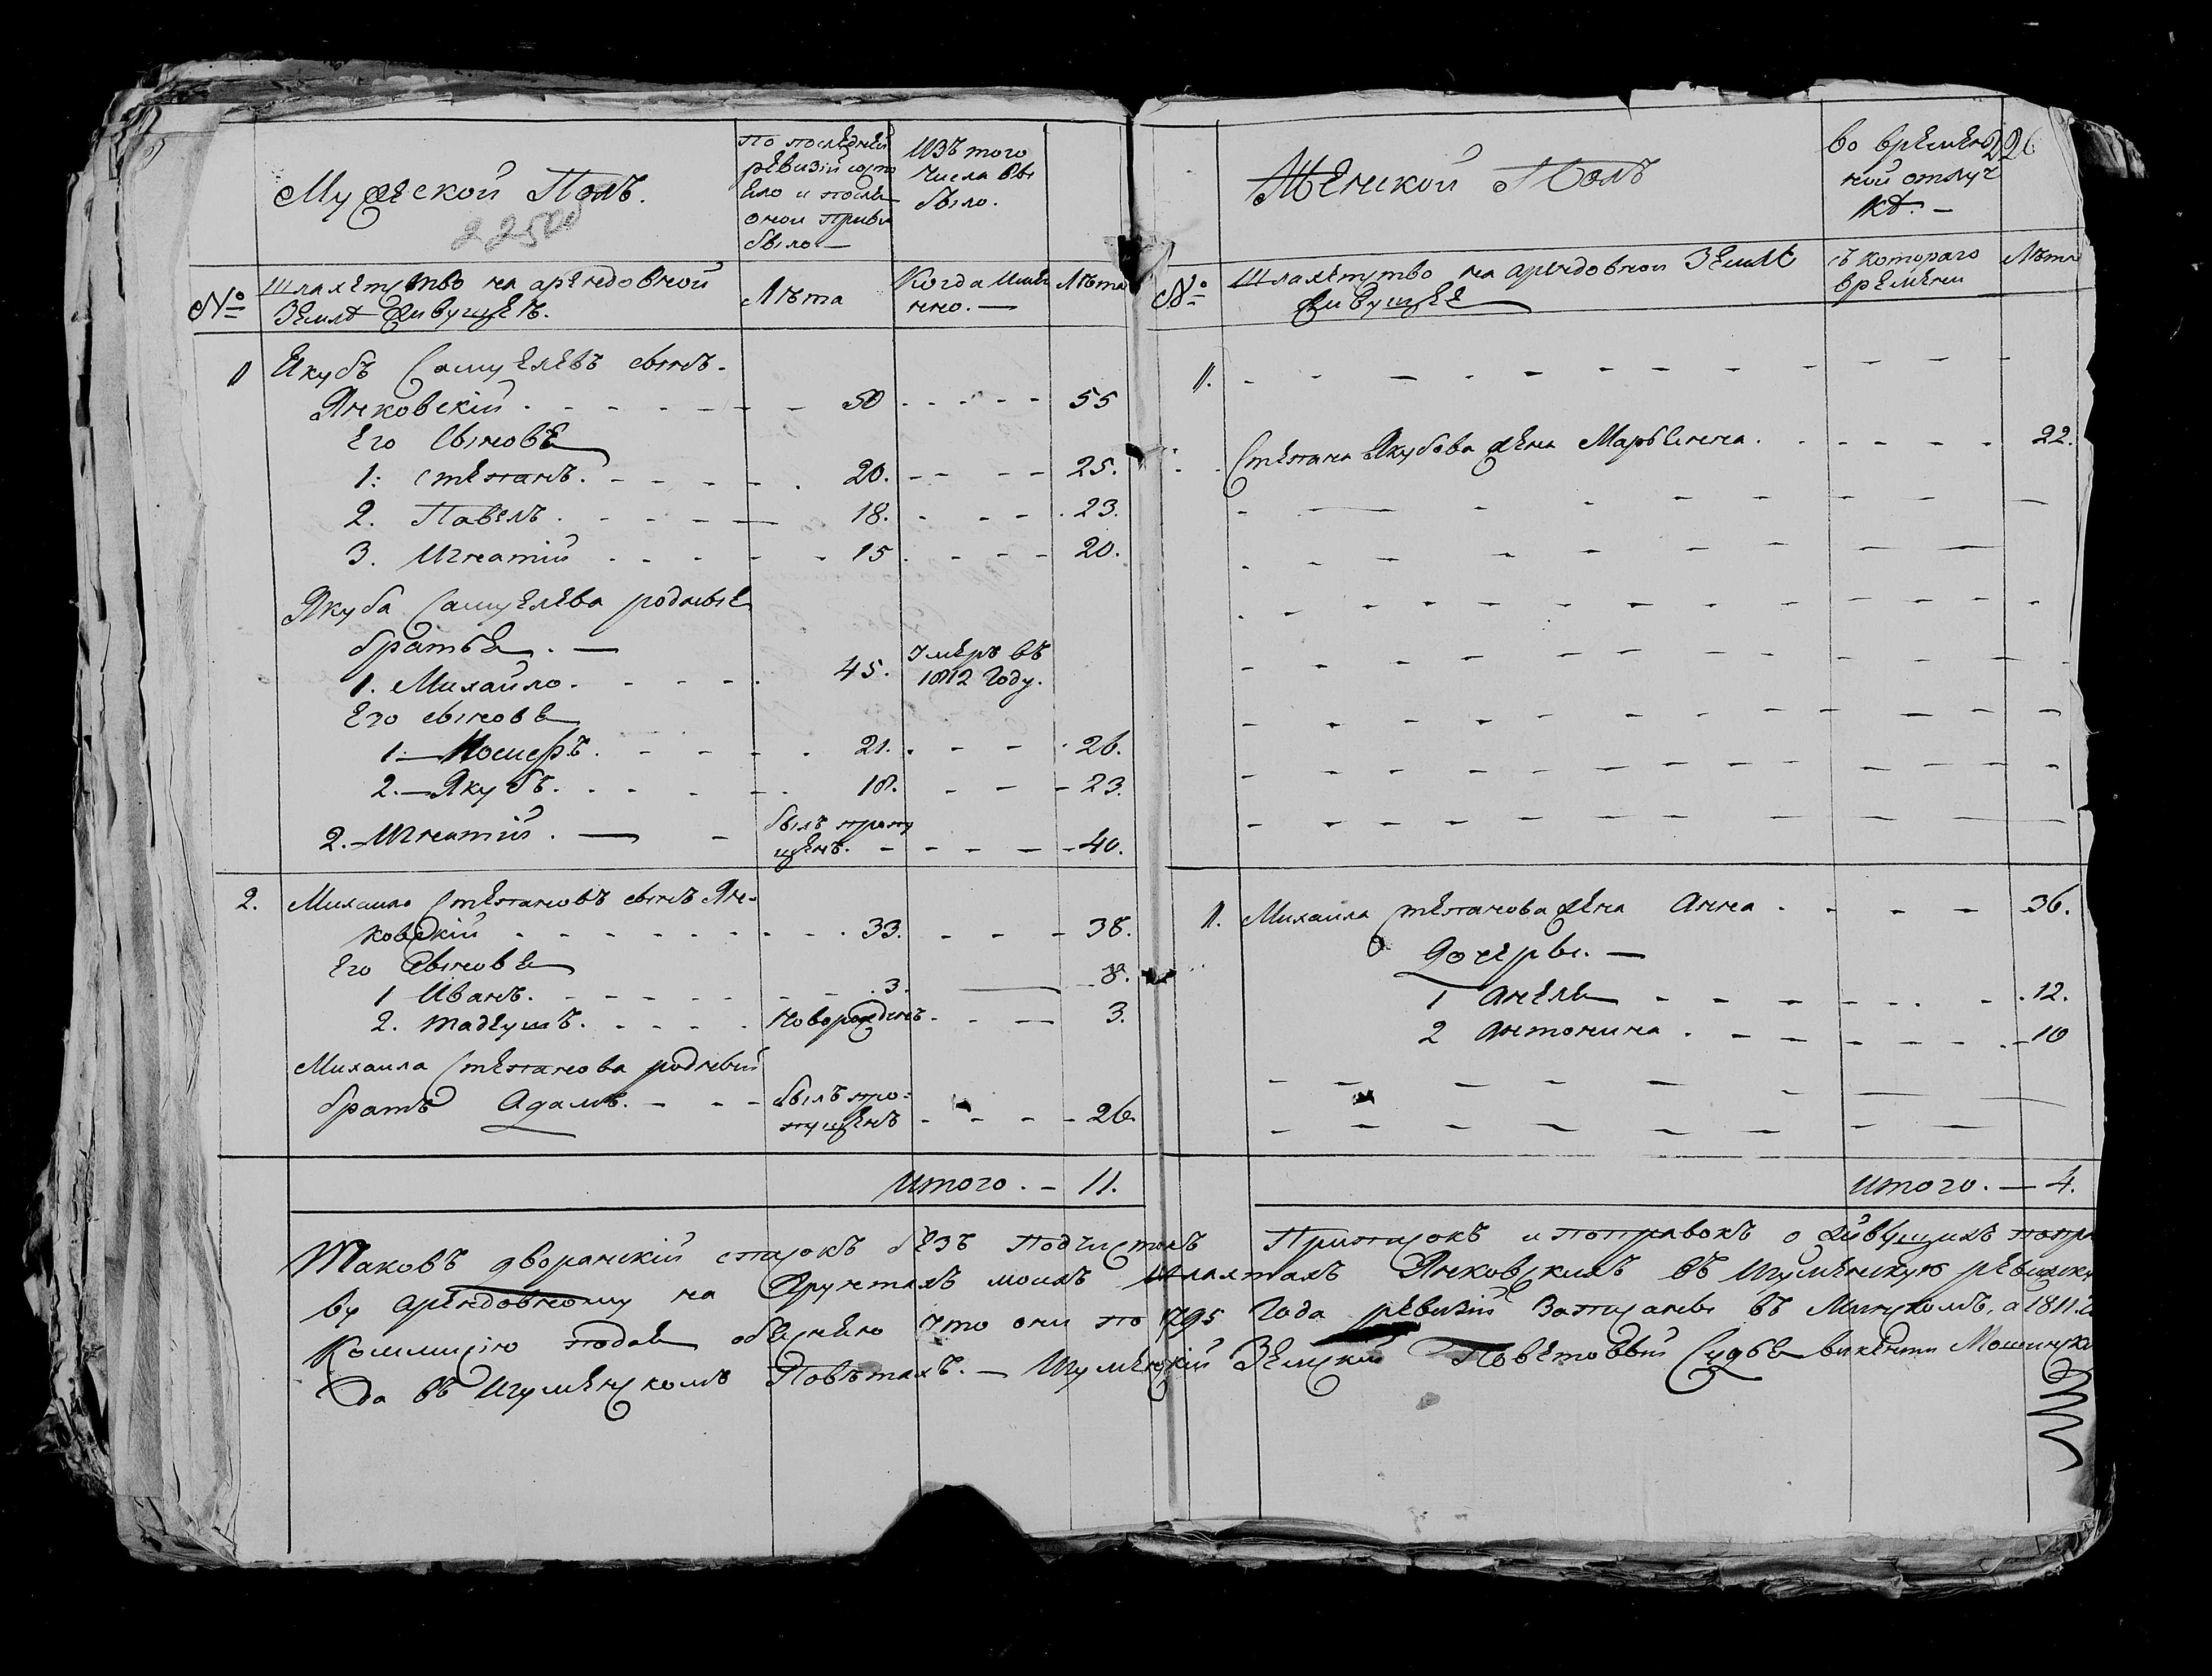 Мужеской Полъ.
По последней
ревизіи сост
яло и после
оной прибы
было —
Изъ того
числа вы
было.
№
Шляхетство на арендовной
Земле живущеъ.
Лѣта
Когда имен
нно. —
Лѣта
1 Якубъ Самуелевъ сынъ
Янковскій 50 55
Его сынове
1: Степанъ. 20. 25.
2. Павелъ. 18. 23.
3. Игнатій 15 20.
Якуба Самуелева родные
братье. —
1. Михайло. 45. Умеръ въ
1812 Году.
Его сынове
1. — Иосифъ. 21. 26.
2. — Якубъ. 18. 23.
2. — Игнатій. — былъ пропу
щенъ. 40.
2. Михайло Степановъ сынъ Ян-
ковскій 33. 38.
Его сынове
1 Иванъ. 3. 8.
2. Тадеушъ. новорожденъ 3.
Михаила Степанова родный
братъ Адамъ. былъ про=
пущенъ 26.
Итого. — 11.
Женской Полъ
во времен
ной отлуч
кѣ. —
226
№
Шляхетство на арендовной Земле
живущее
съ котораго
времени
Лѣта
1.
Степана Якубова жена Марьянна. 22.
1. Михаила Степанова жена Анна 36.
Дочеры. —
1 Анеля 12.
2 Антонина 10
Итого. — 4.
Таковъ дворянскій списокъ безъ Подчистокъ Приписокъ и поправокъ о живущихъ попра
ву арендовному на Грунтахъ моихъ шляхтахъ Янковскихъ въ Игуменскую ревизску
Коммисію подав объясняю что они по 1795 Года ревизіи Записаны въ Минскомъ, а 1811 го
да въ Игуменскомъ Поветахъ. — Игуменскій Земскій Поветовый Судья Викенти Мошинск